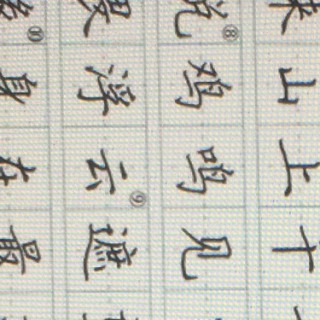 来山上千
说⑧鸡鸣见
畏浮云⑨遮
缘⑩身在最